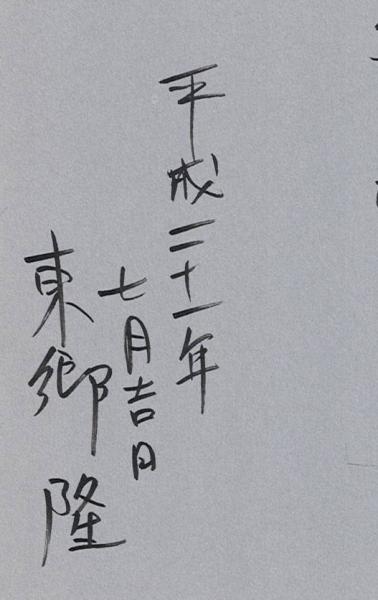 平成二十一年
七月吉日
東郷隆